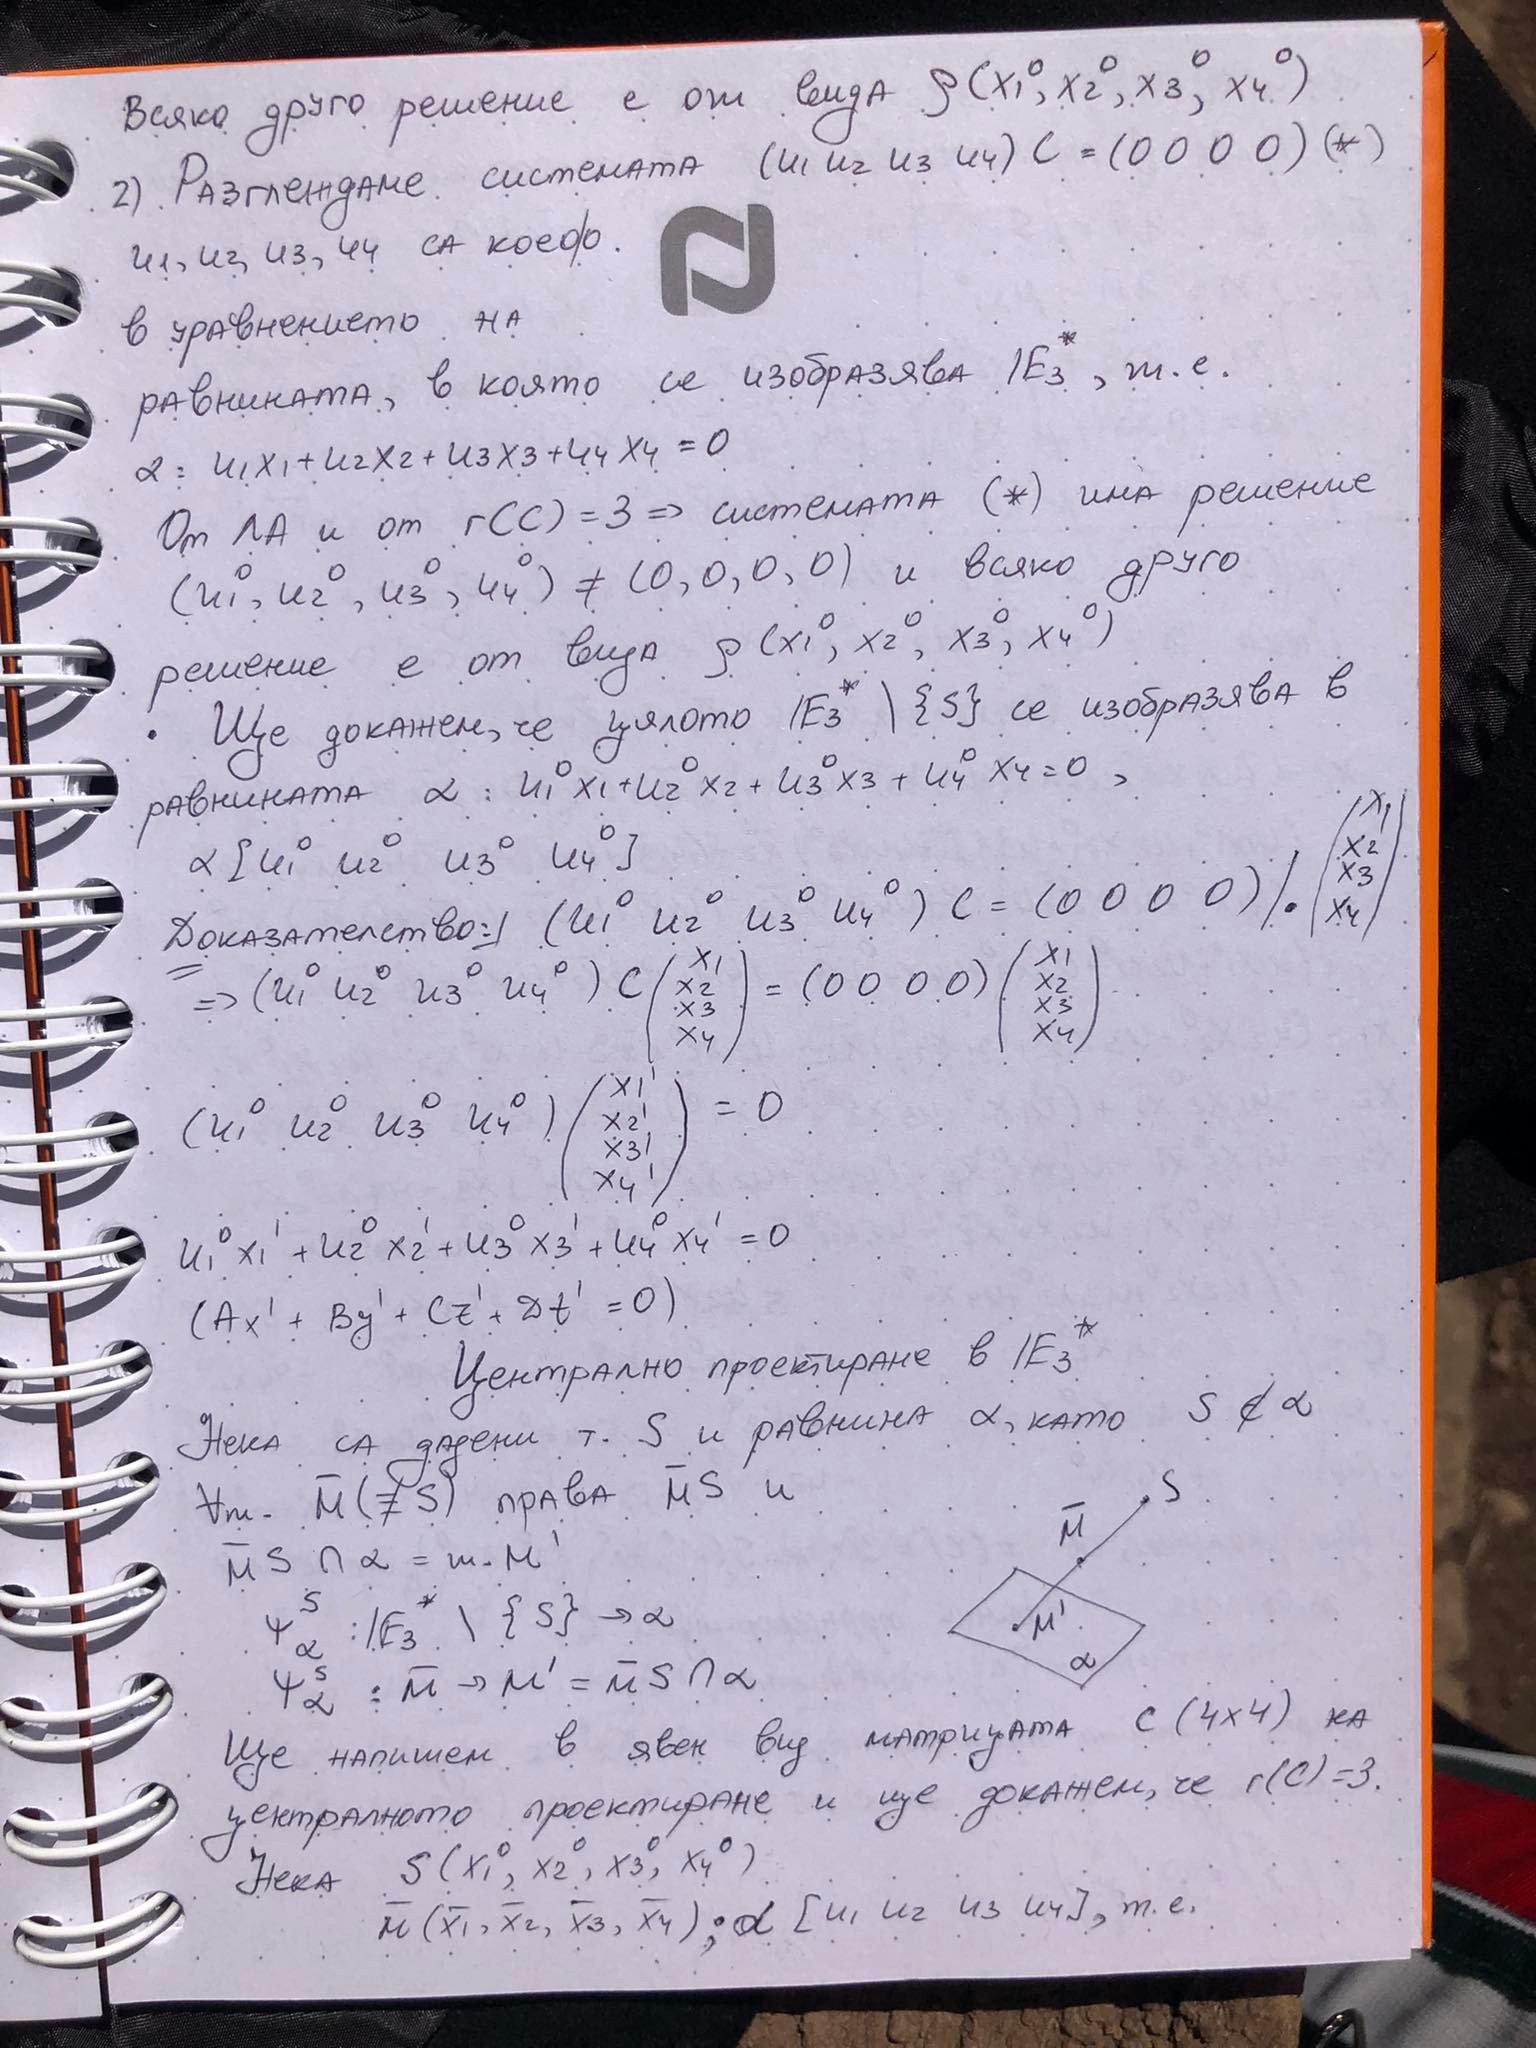 Всяко друго решение е от вида ρ(x₁⁰, x₂⁰, x₃⁰, x₄⁰)
2) Разглеждаме системата (u₁ u₂ u₃ u₄) C = (0 0 0 0) (*)
u₁, u₂, u₃, u₄ са коеф.
в уравнението на
равнината, в която се изобразява E₃*, т.е.
α: u₁x₁+u₂x₂+u₃x₃+u₄x₄=0
От ЛА и от r(C)=3 => системата (*) има решение
(u₁⁰, u₂⁰, u₃⁰, u₄⁰) ≠ (0,0,0,0) и всяко друго
решение е от вида ρ(x₁⁰, x₂⁰, x₃⁰, x₄⁰)
• Ще докажем, че цялото E₃* \ {S} се изобразява в
равнината α: u₁⁰x₁+u₂⁰x₂+u₃⁰x₃+u₄⁰x₄=0,
α[u₁⁰ u₂⁰ u₃⁰ u₄⁰]
Доказателство: (u₁⁰ u₂⁰ u₃⁰ u₄⁰) C = (0 0 0 0) /. (x₁ x₂ x₃ x₄)
=> (u₁⁰ u₂⁰ u₃⁰ u₄⁰) C (x₁ x₂ x₃ x₄) = (0 0 0 0) (x₁ x₂ x₃ x₄)
(u₁⁰ u₂⁰ u₃⁰ u₄⁰) (x₁' x₂' x₃' x₄') = 0
u₁⁰x₁' + u₂⁰x₂' + u₃⁰x₃' + u₄⁰x₄' = 0
(Ax' + By' + Cz' + Dt' = 0)
Централно проектиране в E₃*
Нека са дадени т. S и равнина α, като S ⊄ α
∀т. M̄(≢S) права M̄S и
M̄S ∩ α = т. M'
ψ_α^S : E₃* \ {S} → α
ψ_α^S : M̄ → M' = M̄S ∩ α
S
M̄
M'
α
Ще напишем в явен вид матрицата C (4x4) на
централното проектиране и ще докажем, че r(C)=3.
Нека S(x₁⁰, x₂⁰, x₃⁰, x₄⁰)
M̄(x̄₁, x̄₂, x̄₃, x̄₄); α [u₁ u₂ u₃ u₄], т.е.